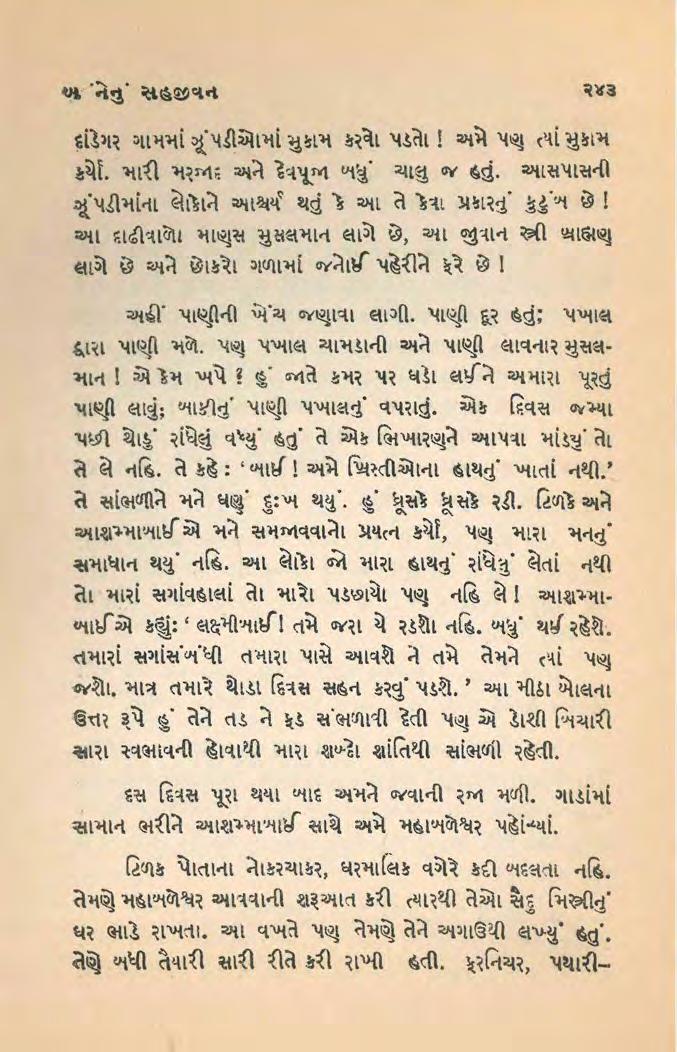 બંનેનું સહજીવન ૨૪૩
દાંડેગર ગામમાં ઝૂંપડીઓમાં મુકામ કરવો પડતો ! અમે પણ ત્યાં મુકામ
કર્યો. મારી મરજાદ અને દેવપૂજા બધું ચાલુ જ હતું. આસપાસની
ઝૂંપડીમાંના લોકોને આશ્ચર્ય થતું કે આ તે કેવા પ્રકારનું કુટુંબ છે !
આ દાઢીવાળો માણસ મુસલમાન લાગે છે, આ જુવાન સ્ત્રી બ્રાહ્મણ
લાગે છે અને છોકરો ગળામાં જનોઈ પહેરીને ફરે છે !
અહીં પાણીની ખેંચ જણાવા લાગી. પાણી દૂર હતું; પખાલ
દ્વારા પાણી મળે. પણ પખાલ ચામડાની અને પાણી લાવનાર મુસલ-
માન ! એ કેમ ખપે ? હું જાતે કમર પર ઘડો લઈને અમારા પૂરતું
પાણી લાવું; બાકીનું પાણી પખાલનું વપરાતું. એક દિવસ જમ્યા
પછી થોડું રાંધેલું વધ્યું હતું તે એક ભિખારણને આપવા માંડયું તો
તે લે નહિ. તે કહે : ‘બાઈ ! અમે ખ્રિસ્તીઓના હાથનું ખાતાં નથી.’
તે સાંભળીને મને ઘણું દુઃખ થયું. હું ધ્રૂસકે ધ્રૂસકે રડી. ટિળકે અને
આશમ્માબાઈએ મને સમજાવવાનો પ્રયત્ન કર્યો, પણ મારા મનનું
સમાધાન થયું નહિ. આ લોકો જો મારા હાથનું રાંધેલું લેતાં નથી
તો મારાં સગાંવહાલાં તો મારો પડછાયો પણ નહિ લે ! આશમ્મા-
બાઈએ કહ્યું: ‘ લક્ષ્મીબાઈ! તમે જરા યે રડશો નહિ. બધું થઈ રહેશે.
તમારાં સગાંસંબંધી તમારા પાસે આવશે ને તમે તેમને ત્યાં પણ
જશો. માત્ર તમારે થોડા દિવસ સહન કરવું પડશે. ’ આ મીઠા બોલના
ઉત્તર રૂપે હું તેને તડ ને ફડ સંભળાવી દેતી પણ એ ડોશી બિચારી
સારા સ્વભાવની હોવાથી મારા શબ્દો શાંતિથી સાંભળી રહેતી.
દસ દિવસ પૂરા થયા બાદ અમને જવાની રજા મળી. ગાડાંમાં
સામાન ભરીને આશમ્માબાઈ સાથે અમે મહાબળેશ્વર પહોંચ્યાં.
ટિળક પોતાના નોકરચાકર, ઘરમાલિક વગેરે કદી બદલતા નહિ.
તેમણે મહાબળેશ્વર આવવાની શરૂઆત કરી ત્યારથી તેઓ સૈદુ મિસ્ત્રીનું
ઘર ભાડે રાખતા. આ વખતે પણ તેમણે તેને અગાઉથી લખ્યું હતું.
તેણે બધી તૈયારી સારી રીતે કરી રાખી હતી. ફરનિચર, પથારી–